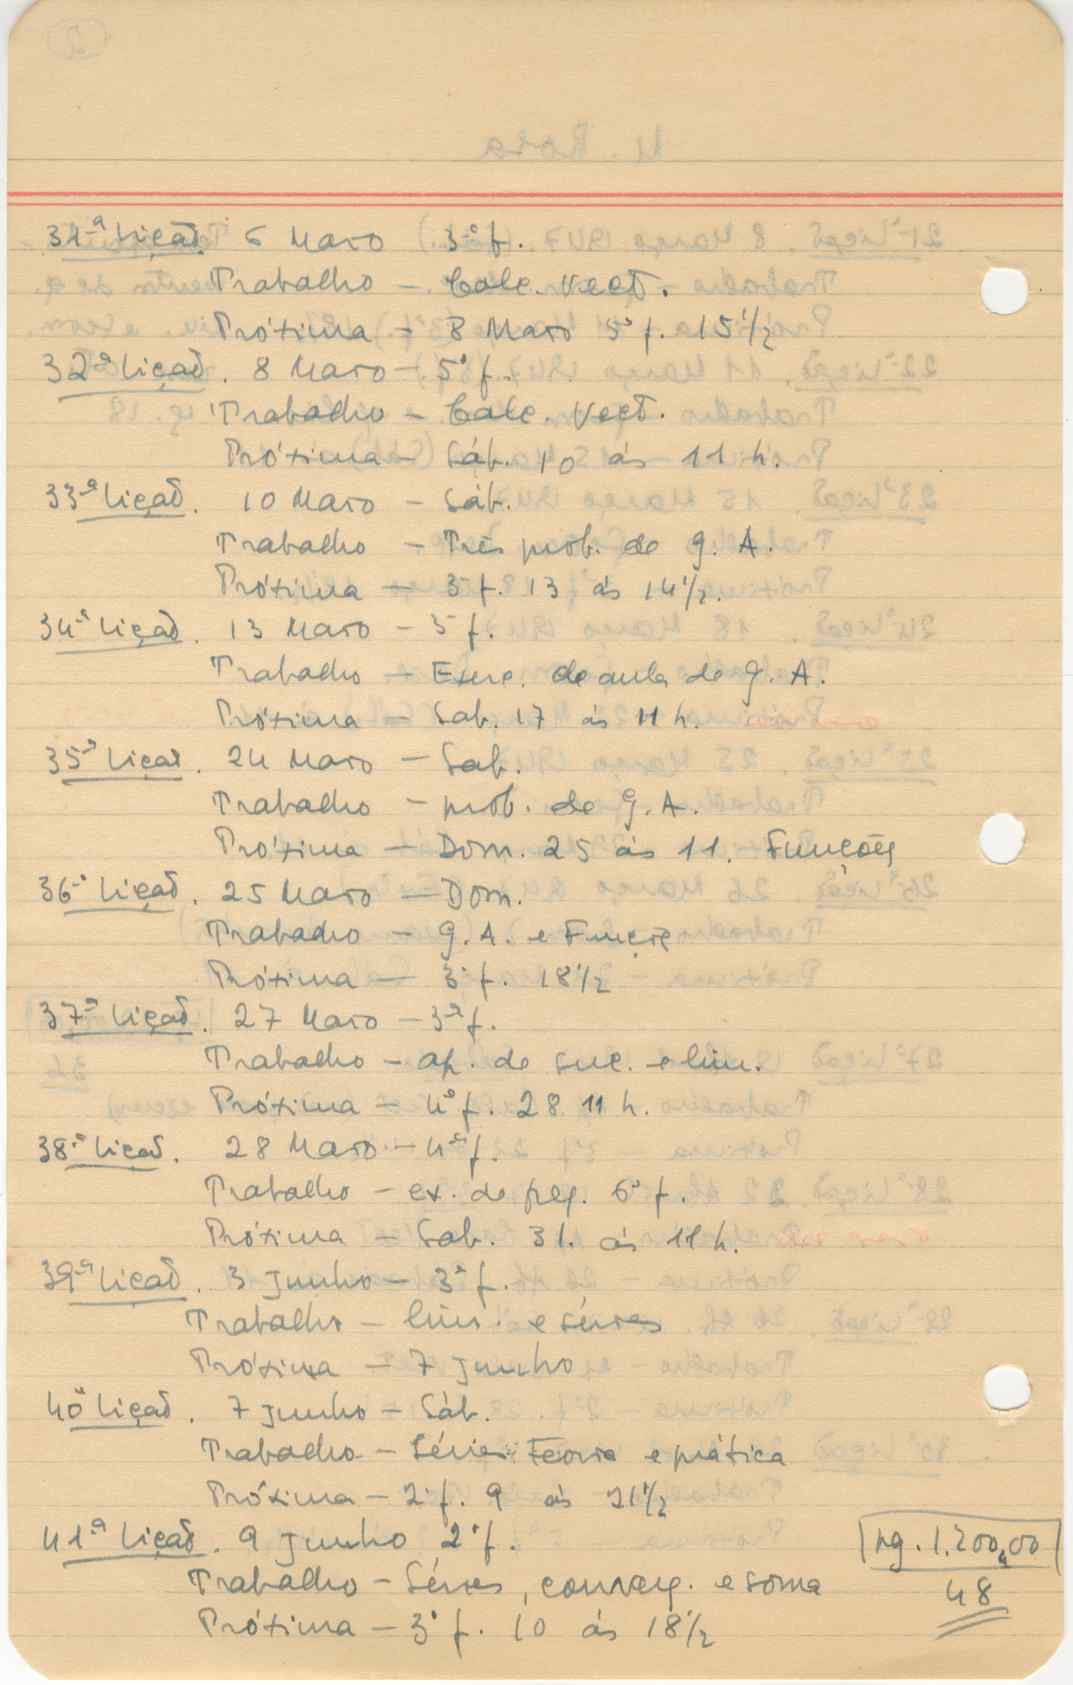 31ª Lição. 6 Maio 3ª f.
Trabalho – Calc. Vect.
Próxima – 8 Maio 5ª f. 15 1/2
32ª Lição. 8 Maio – 5ª f.
Trabalho – Calc. Vect.
Próxima – Sáb. 10 às 11 h.
33ª Lição. 10 Maio – Sáb.
Trabalho – Três prob. de G. A.
Próxima – 3ª f. 13 às 14 1/2.
34ª Lição. 13 Maio – 3ª f.
Trabalho – Exerc. de aula de G. A.
Próxima – Sab. 17 às 11 h.
35ª Lição. 24 Maio – Sab.
Trabalho – prob. de G. A.
Próxima – Dom. 25 às 11. Funções
36ª Lição. 25 Maio – Dom.
Trabalho – G. A. e Funções
Próxima – 3ª f. 18 1/2
37ª Lição. 27 Maio – 3ª f.
Trabalho – ap. de suc. e lim.
Próxima – 4ª f. 28 11 h.
38ª Lição. 28 Maio – 4ª f.
Trabalho – ex. de freq. 6ª f.
Próxima – Sab. 31. às 11 h.
39ª Lição. 3 Junho – 3ª f.
Trabalho – lim. e séries
Próxima – 7 Junho
40ª Lição. 7 Junho – Sáb.
Trabalho – Séries Teoria e prática
Próxima – 2ª f. 9 às 21 1/2
41ª Lição. 9 Junho 2ª f.
Trabalho – Séries, converg. e soma
Próxima – 3ª f. 10 às 18 1/2
pg. 1.200,00
48